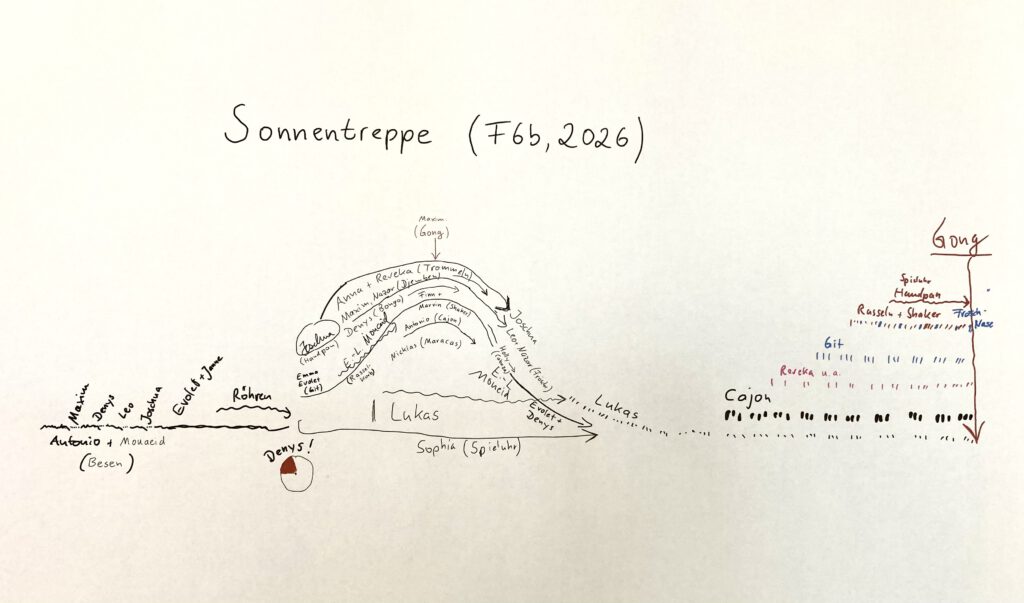 Sonnentreppe (F6b, 2026)
Maxim
(Gong)
Gong
Anna + Reveka (Trommeln)
Maxim, Nazar (Djemben)
Denys (Bongo)
Finn +
Marvin (Shaker)
Antonio (Cajon)
Nicklas (Maracas)
Joschua
(Handpan)
E.-L. Mouaeid
Emma
Evolet
(Git)
Joschua
Leon Nazar (Frosch)
E.-L.
Mouaeid
Evolet +
Denys
Lukas
Lukas
Sophia (Spieluhr)
Denys!
Röhren
Maxim
Denys
Leo
Joschua
Evolet + Janne
Antonio + Mouaeid
(Besen)
Spieluhr
Handpan
Rasseln + Shaker
Frosch-
Nase
Git
Reveka u.a.
Cajon